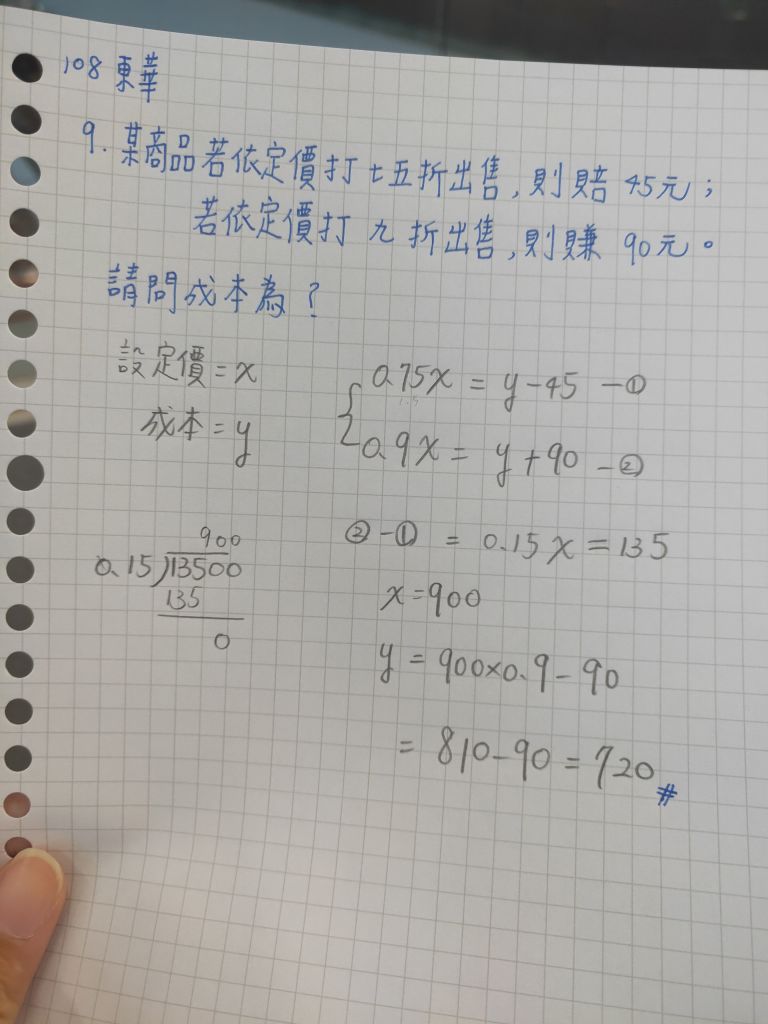 108 東華
9. 某商品若依定價打七五折出售,則賠 45元;
若依定價打 九 折出售,則賺 90元。
請問成本為?
設定價=x
成本=y
0.75x = y-45 -①
0.9x = y+90 -②
②-① = 0.15x=135
x=900
y = 900×0.9-90
= 810-90=720#
900
0.15)13500
135
0